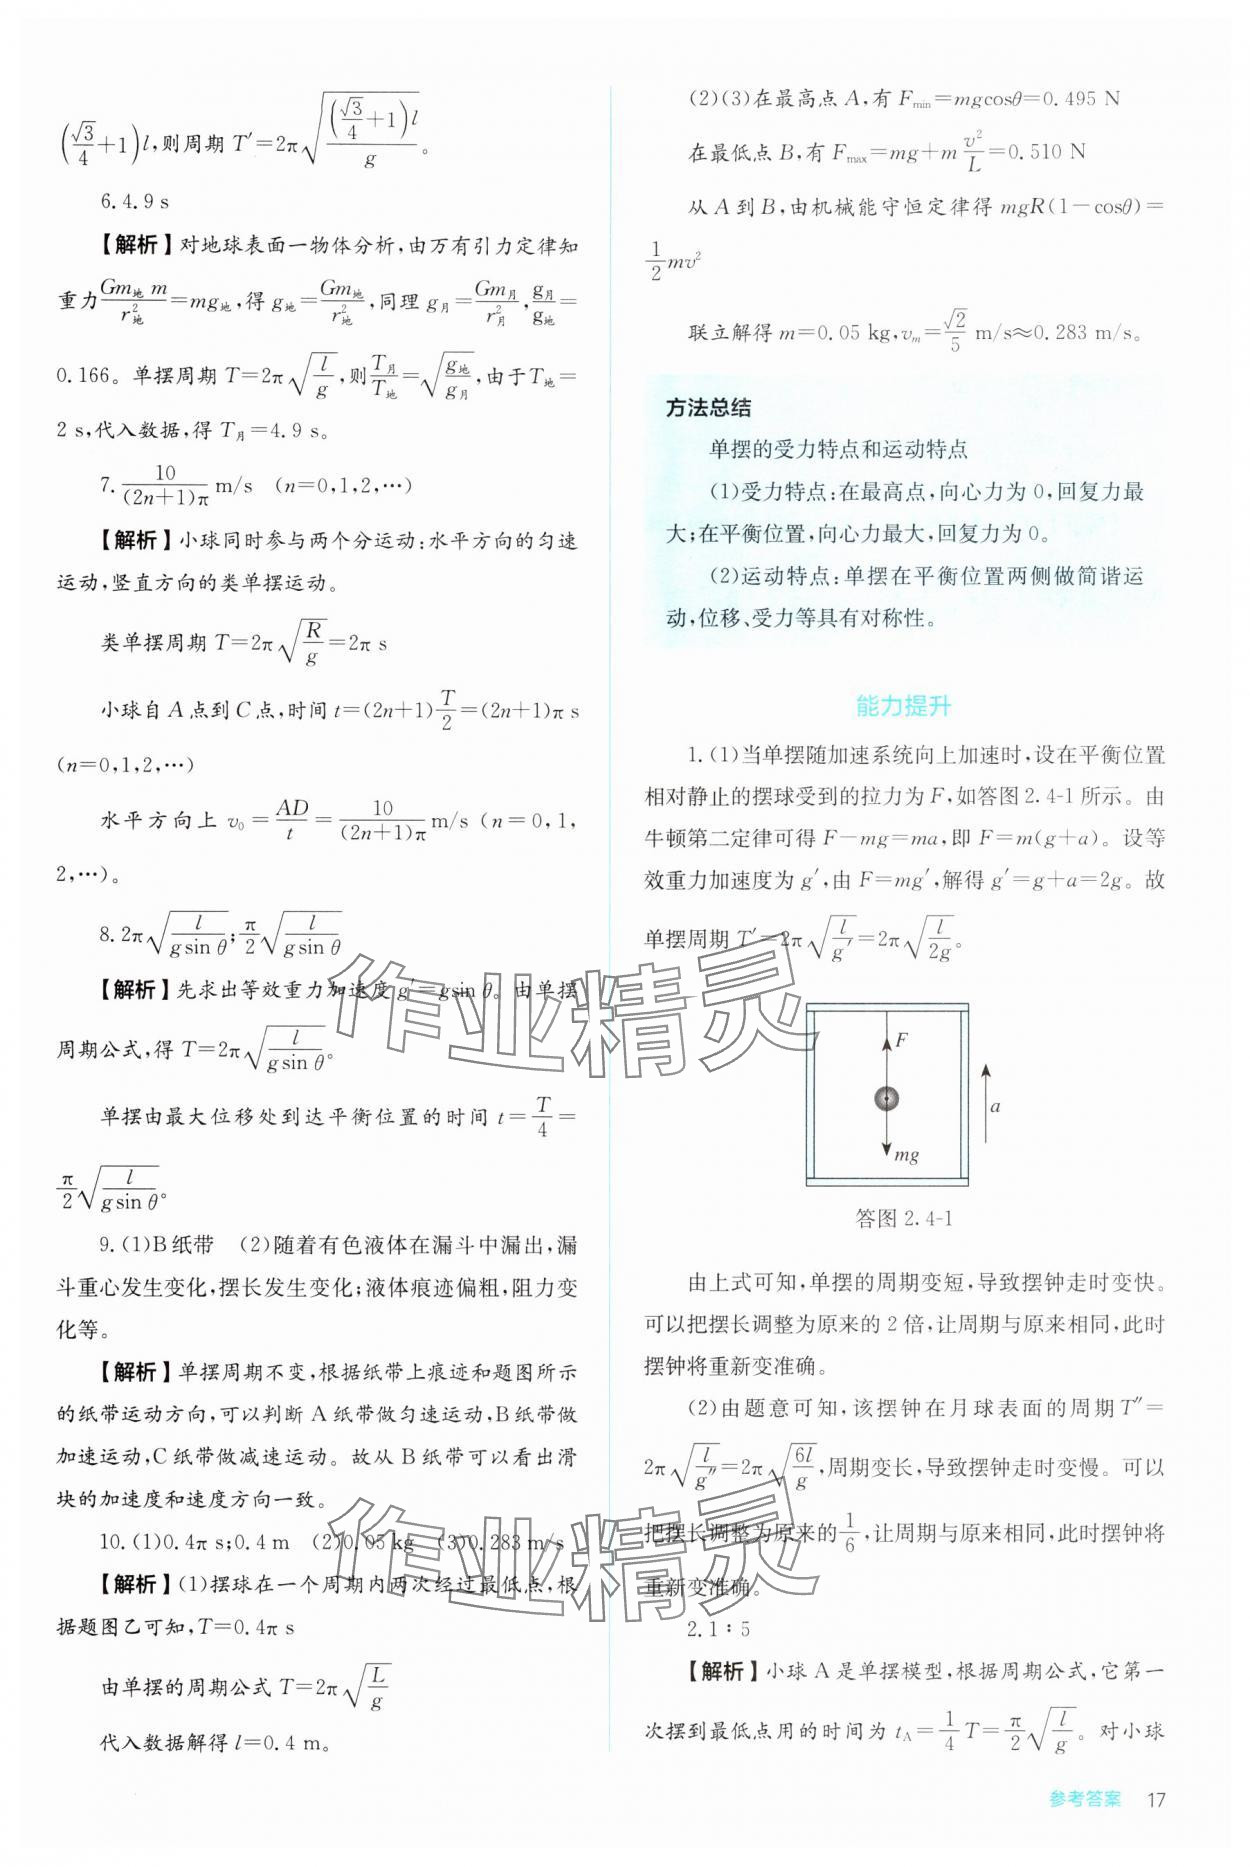 (√3/4+1)l,则周期 T′=2π√((√3/4+1)l/g)。
6.4.9 s
【解析】对地球表面一物体分析,由万有引力定律知
重力Gm地 m/r²地=mg地,得 g地=Gm地/r²地,同理 g月=Gm月/r²月,g月/g地=
0.166。单摆周期 T=2π√(l/g),则T月/T地=√(g地/g月),由于T地=
2 s,代入数据,得 T月=4.9 s。
7.10/((2n+1)π) m/s (n=0,1,2,…)
【解析】小球同时参与两个分运动:水平方向的匀速
运动,竖直方向的类单摆运动。
类单摆周期 T=2π√(R/g)=2π s
小球自 A 点到 C 点,时间 t=(2n+1)T/2=(2n+1)π s
(n=0,1,2,…)
水平方向上 v₀=AD/t=10/((2n+1)π) m/s (n=0,1,
2,…)。
8.2π√(l/(gsin θ));π/2√(l/(gsin θ))
【解析】先求出等效重力加速度 g′=gsin θ。由单摆
周期公式,得 T=2π√(l/(gsin θ))。
单摆由最大位移处到达平衡位置的时间 t=T/4=
π/2√(l/(gsin θ))。
9.(1)B纸带 (2)随着有色液体在漏斗中漏出,漏
斗重心发生变化,摆长发生变化;液体痕迹偏粗,阻力变
化等。
【解析】单摆周期不变,根据纸带上痕迹和题图所示
的纸带运动方向,可以判断 A 纸带做匀速运动,B纸带做
加速运动,C纸带做减速运动。故从 B 纸带可以看出滑
块的加速度和速度方向一致。
10.(1)0.4π s;0.4 m (2)0.05 kg (3)0.283 m/s
【解析】(1)摆球在一个周期内两次经过最低点,根
据题图乙可知,T=0.4π s
由单摆的周期公式 T=2π√(L/g)
代入数据解得 l=0.4 m。
(2)(3)在最高点 A,有 Fmin=mgcosθ=0.495 N
在最低点 B,有 Fmax=mg+m v²/L=0.510 N
从 A 到 B,由机械能守恒定律得 mgR(1-cosθ)=
1/2 mv²
联立解得 m=0.05 kg,vm=√2/5 m/s≈0.283 m/s。
方法总结
单摆的受力特点和运动特点
(1)受力特点:在最高点,向心力为 0,回复力最
大;在平衡位置,向心力最大,回复力为 0。
(2)运动特点:单摆在平衡位置两侧做简谐运
动,位移、受力等具有对称性。
能力提升
1.(1)当单摆随加速系统向上加速时,设在平衡位置
相对静止的摆球受到的拉力为 F,如答图2.4-1 所示。由
牛顿第二定律可得 F-mg=ma,即 F=m(g+a)。设等
效重力加速度为 g′,由 F=mg′,解得 g′=g+a=2g。故
单摆周期 T′=2π√(l/g′)=2π√(l/2g)。
F
a
mg
答图 2.4-1
由上式可知,单摆的周期变短,导致摆钟走时变快。
可以把摆长调整为原来的 2 倍,让周期与原来相同,此时
摆钟将重新变准确。
(2)由题意可知,该摆钟在月球表面的周期 T″=
2π√(l/g″)=2π√(6l/g),周期变长,导致摆钟走时变慢。可以
把摆长调整为原来的1/6,让周期与原来相同,此时摆钟将
重新变准确。
2.1∶5
【解析】小球 A 是单摆模型,根据周期公式,它第一
次摆到最低点用的时间为 tA=1/4 T=π/2√(l/g)。对小球
作业精灵
作业精灵
参考答案 17